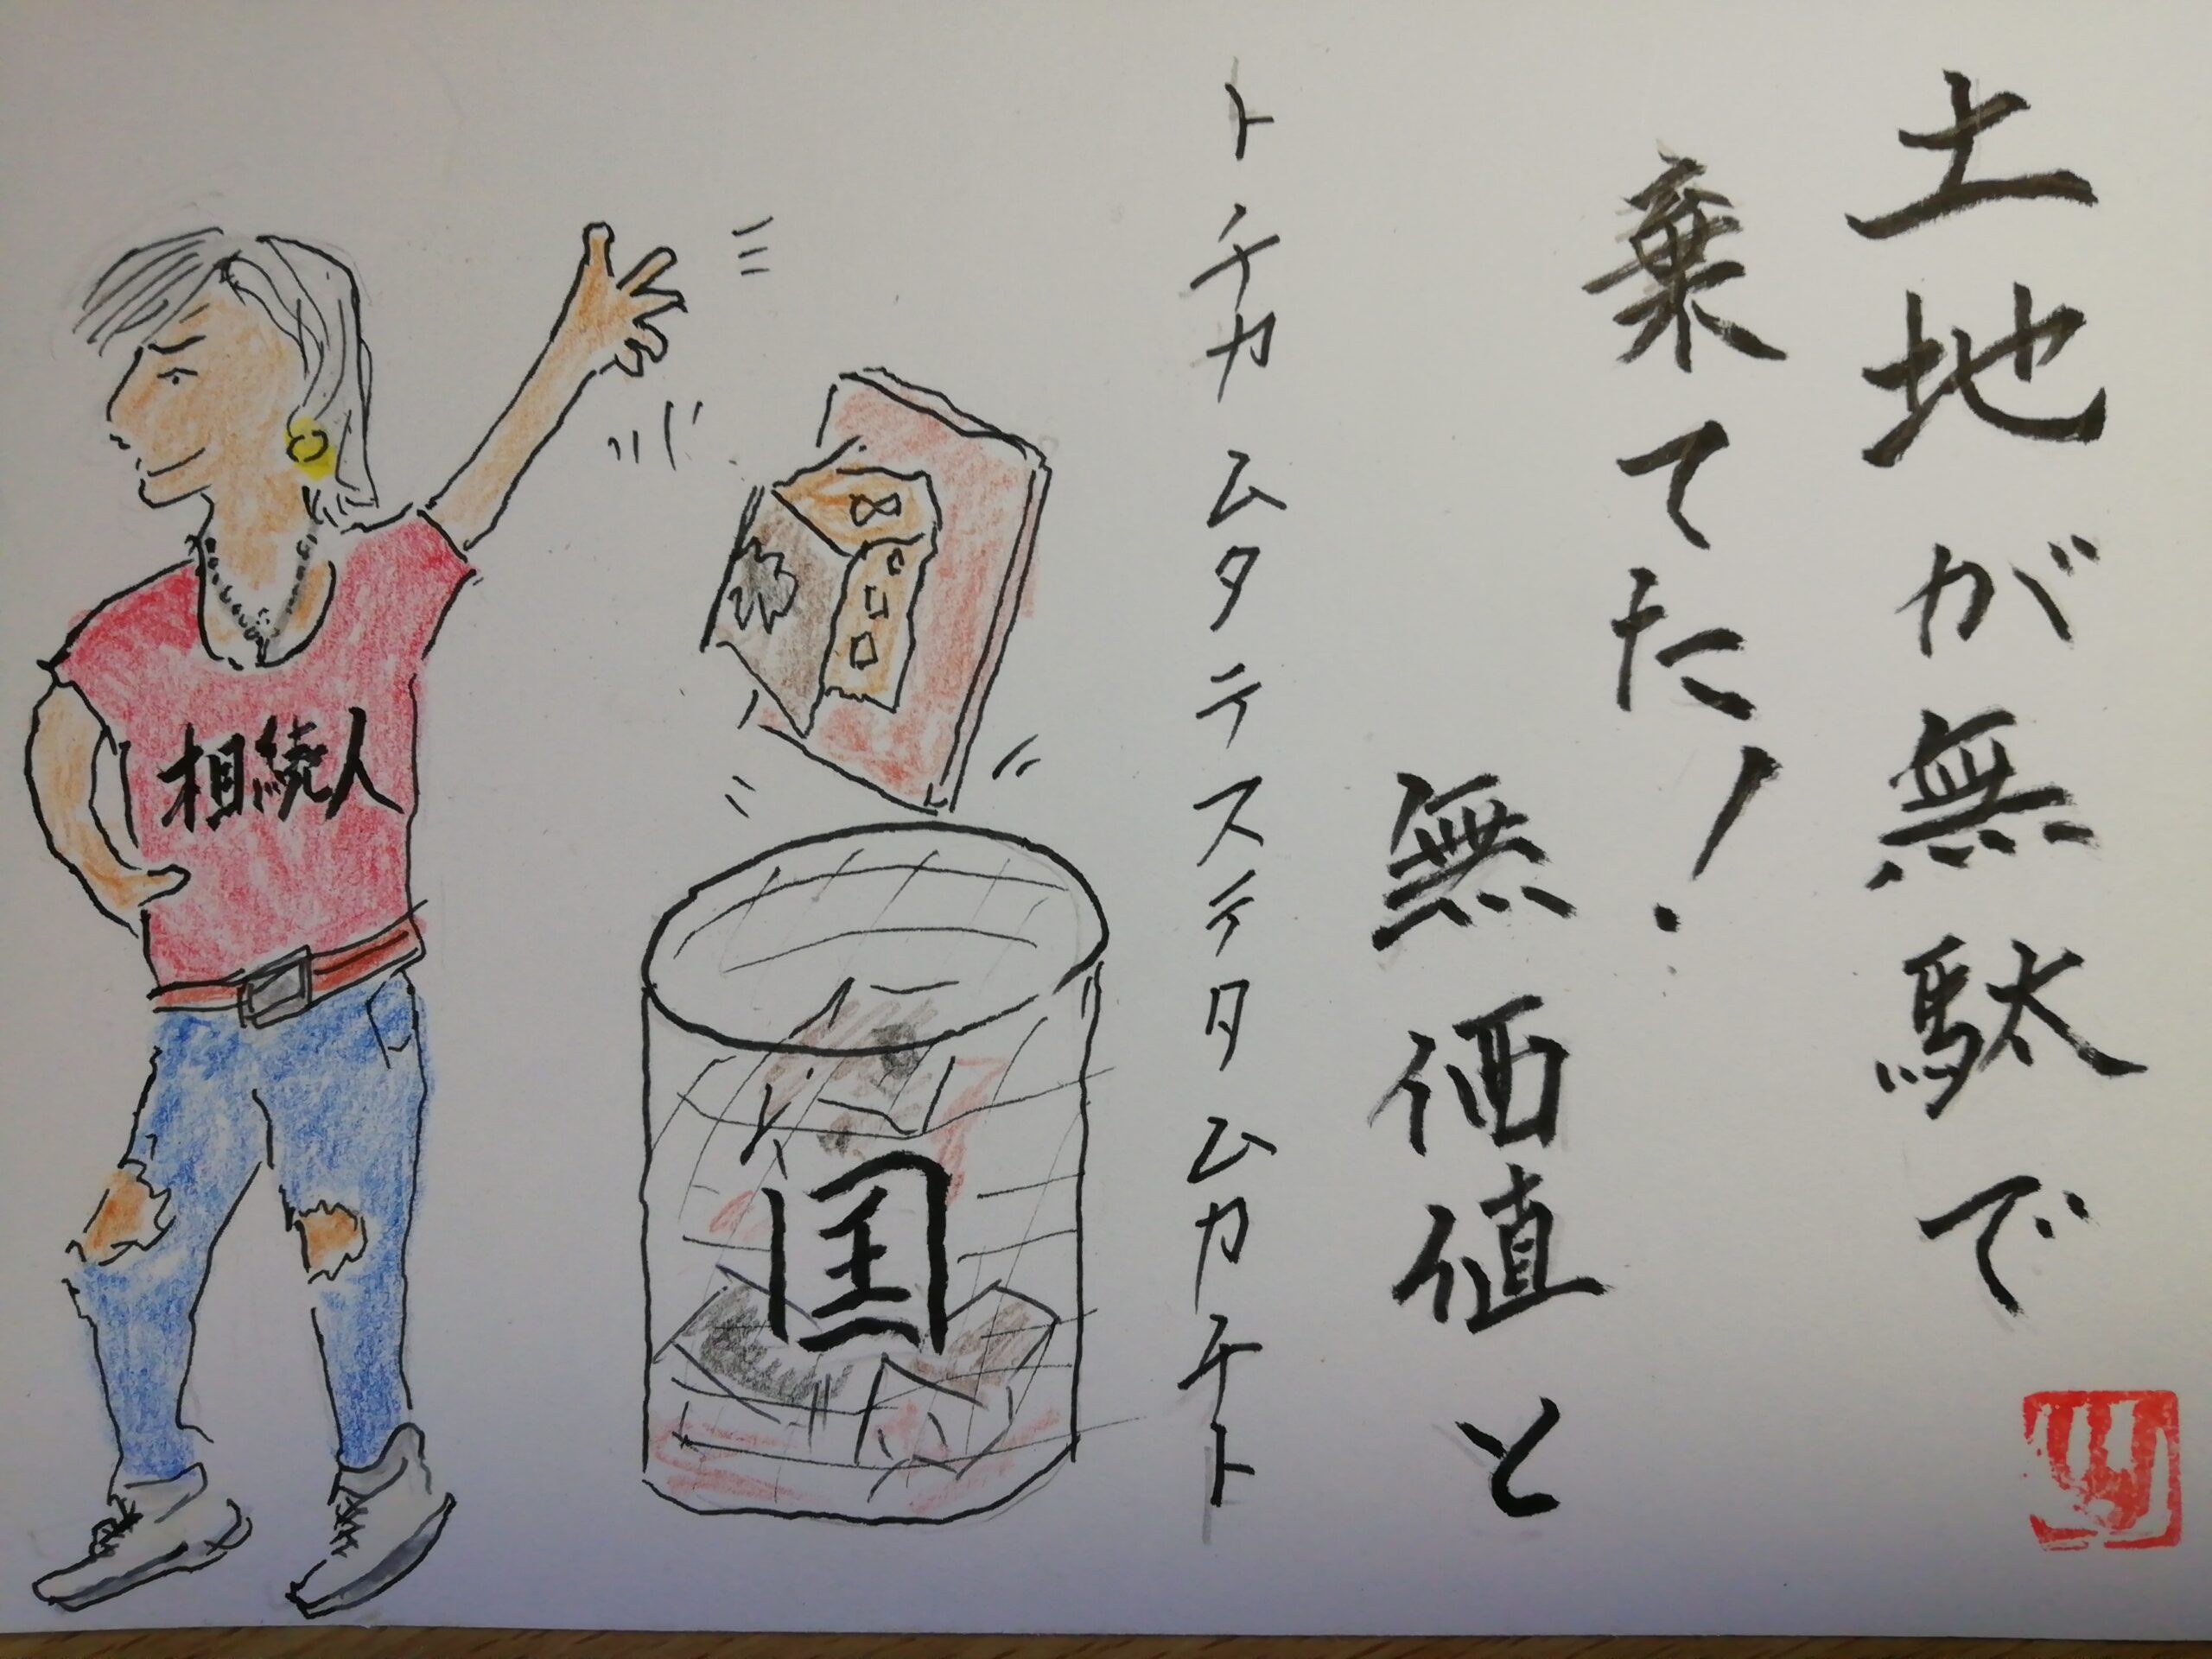 土地が無駄で
棄てた!
無価値と
トチカムタテステタムカチト
国
相続人